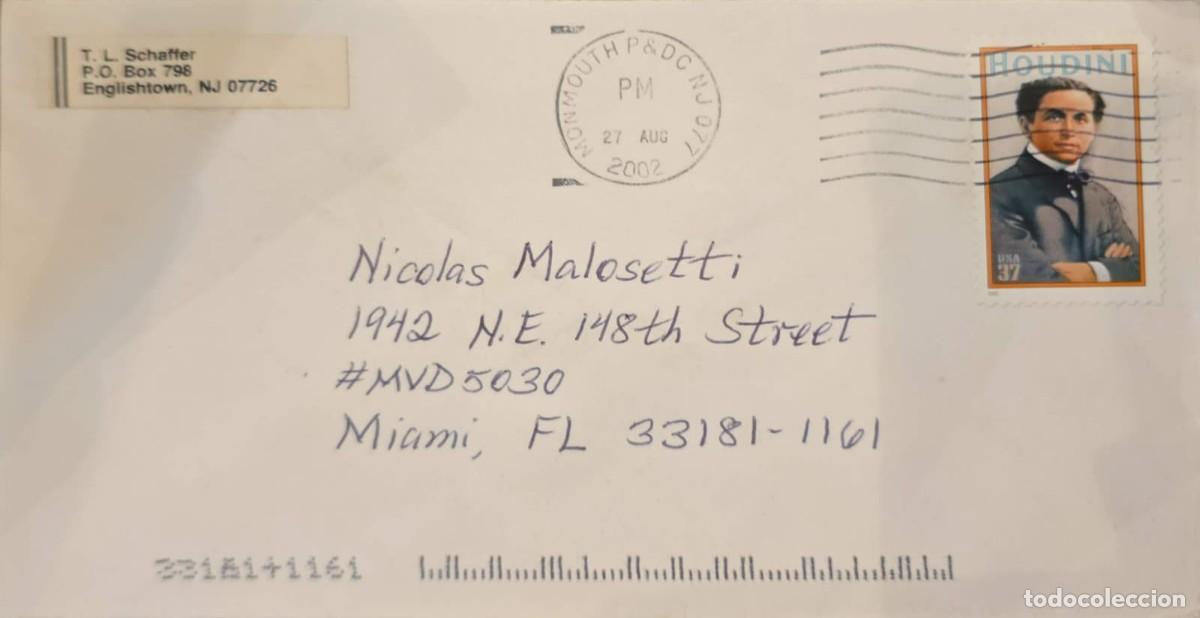 T. L. Schaffer
P.O. Box 798
Englishtown, NJ 07726
MONMOUTH P&DC NJ 077
PM
27 AUG
2002
HOUDINI
USA
37
Nicolas Malosetti
1942 N.E. 148th Street
#MVD5030
Miami, FL 33181-1161
33181+1161
todocoleccion